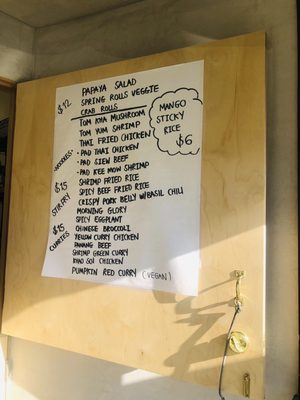 $12
PAPAYA SALAD
SPRING ROLLS VEGGIE
CRAB ROLLS
TOM KHA MUSHROOM
TOM YUM SHRIMP
THAI FRIED CHICKEN
MANGO
STICKY
RICE
$6
-NOODLES-
• PAD THAI CHICKEN
• PAD SIEW BEEF
• PAD KEE MOW SHRIMP
$15
STIRFRY
SHRIMP FRIED RICE
SPICY BEEF FRIED RICE
CRISPY PORK BELLY W/BASIL CHILI
MORNING GLORY
SPICY EGGPLANT
$15
CURRIES
CHINESE BROCCOLI
YELLOW CURRY CHICKEN
PANANG BEEF
SHRIMP GREEN CURRY
KHAO SOI CHICKEN
PUMPKIN RED CURRY (VEGAN)